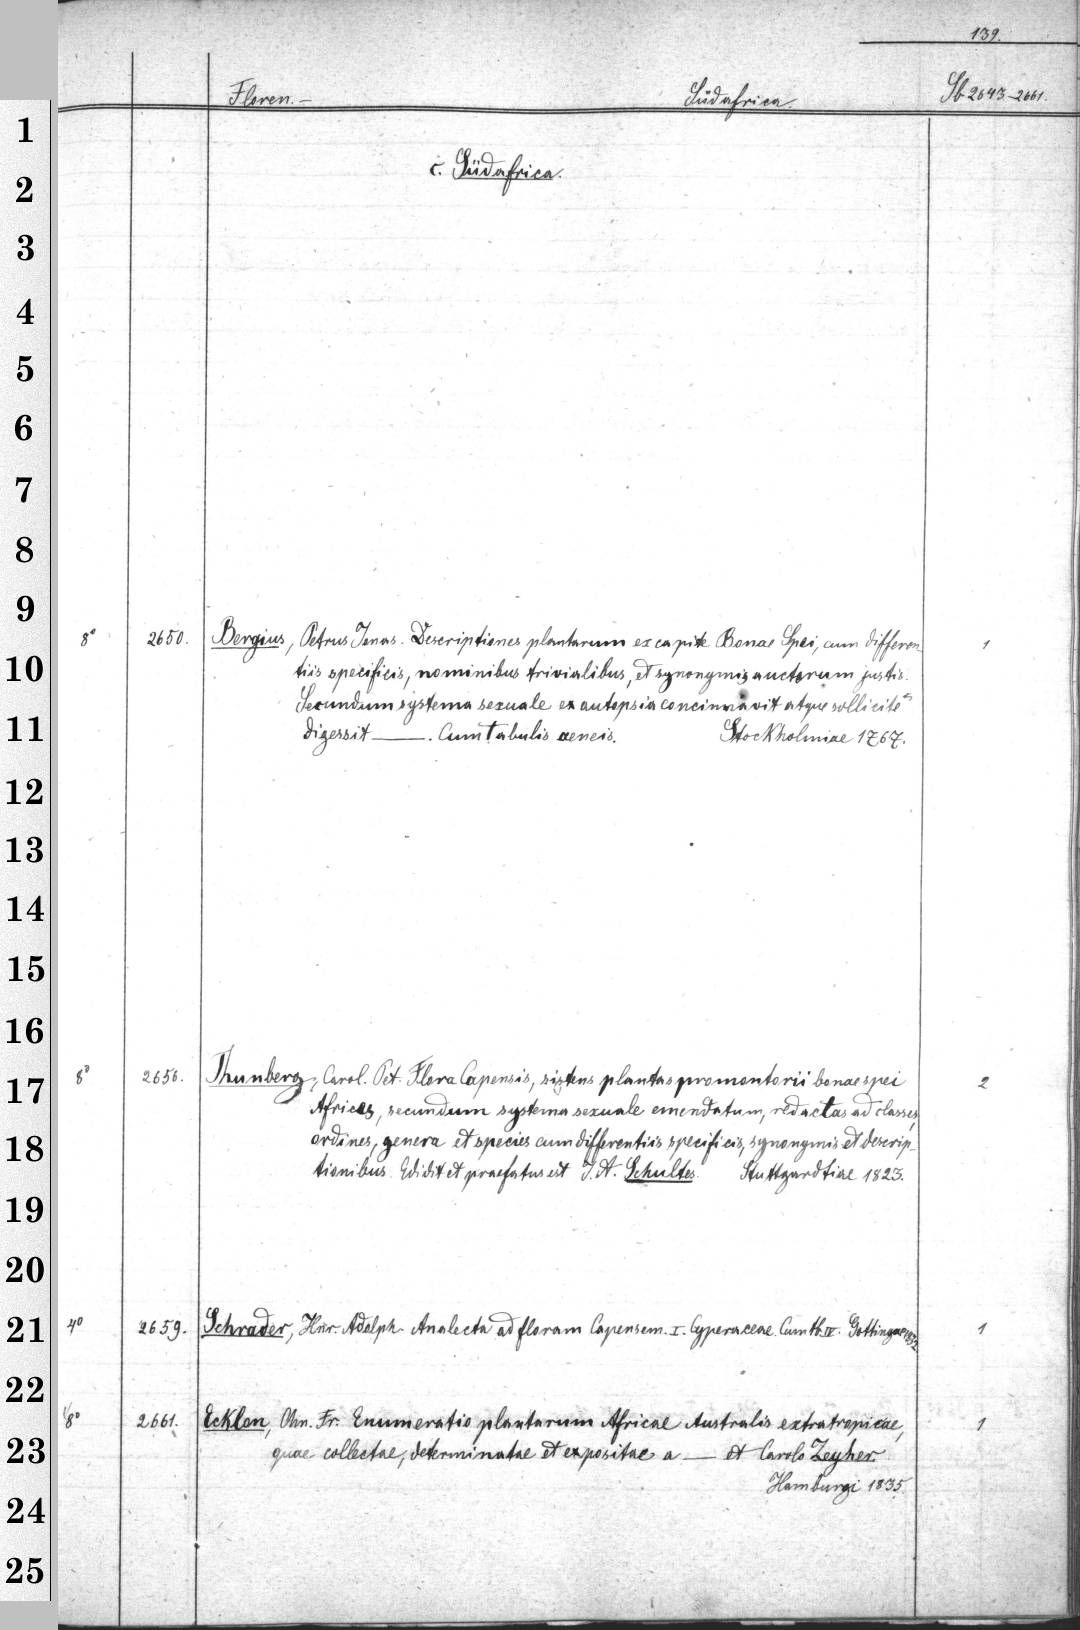 139.
Floren.— Südafrica. Sb 2643–2661.
c. Südafrica.
8° 2650. Bergius, Petrus Jonas. Descriptiones plantarum ex capite Bonae Spei, cum differen- 1
tiis specificis, nominibus trivialibus, et synonymis auctorum justis.
Secundum systema sexuale ex autopsia concinnavit atque sollicite
digessit ——. Cum tabulis aeneis. Stockholmiae 1767.
8° 2656. Thunberg, Carol. Pet. Flora Capensis, sistens plantas promontorii bonae spei 2
Africes, secundum systema sexuale emendatum, redactas ad classes,
ordines, genera et species cum differentiis specificis, synonymis et descrip-
tionibus. Edidit et praefatus est J. A. Schultes. Stuttgardtiae 1823.
4° 2659. Schrader, Hnr. Adolph. Analecta ad floram Capensem. I. Cyperaceae. Cum tb. IV. Gottingae 1832 1
8° 2661. Ecklon, Chn. Fr. Enumeratio plantarum Africae Australis extratropicae, 1
quae collectae, determinatae et expositae a —— et Carolo Zeyher.
Hamburgi 1835.
1
2
3
4
5
6
7
8
9
10
11
12
13
14
15
16
17
18
19
20
21
22
23
24
25